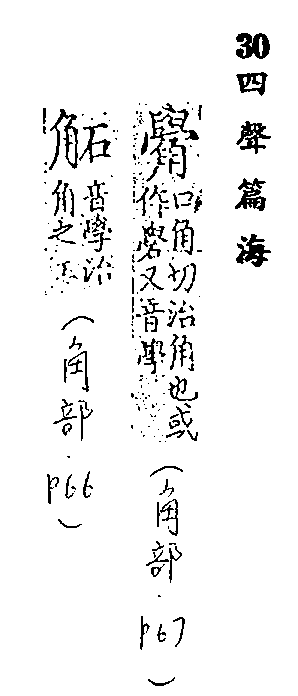 30 四聲篇海
觷 口角切治角也或
作礐又音學
(角部.p67)
音學治
角之工
(角部.p66)